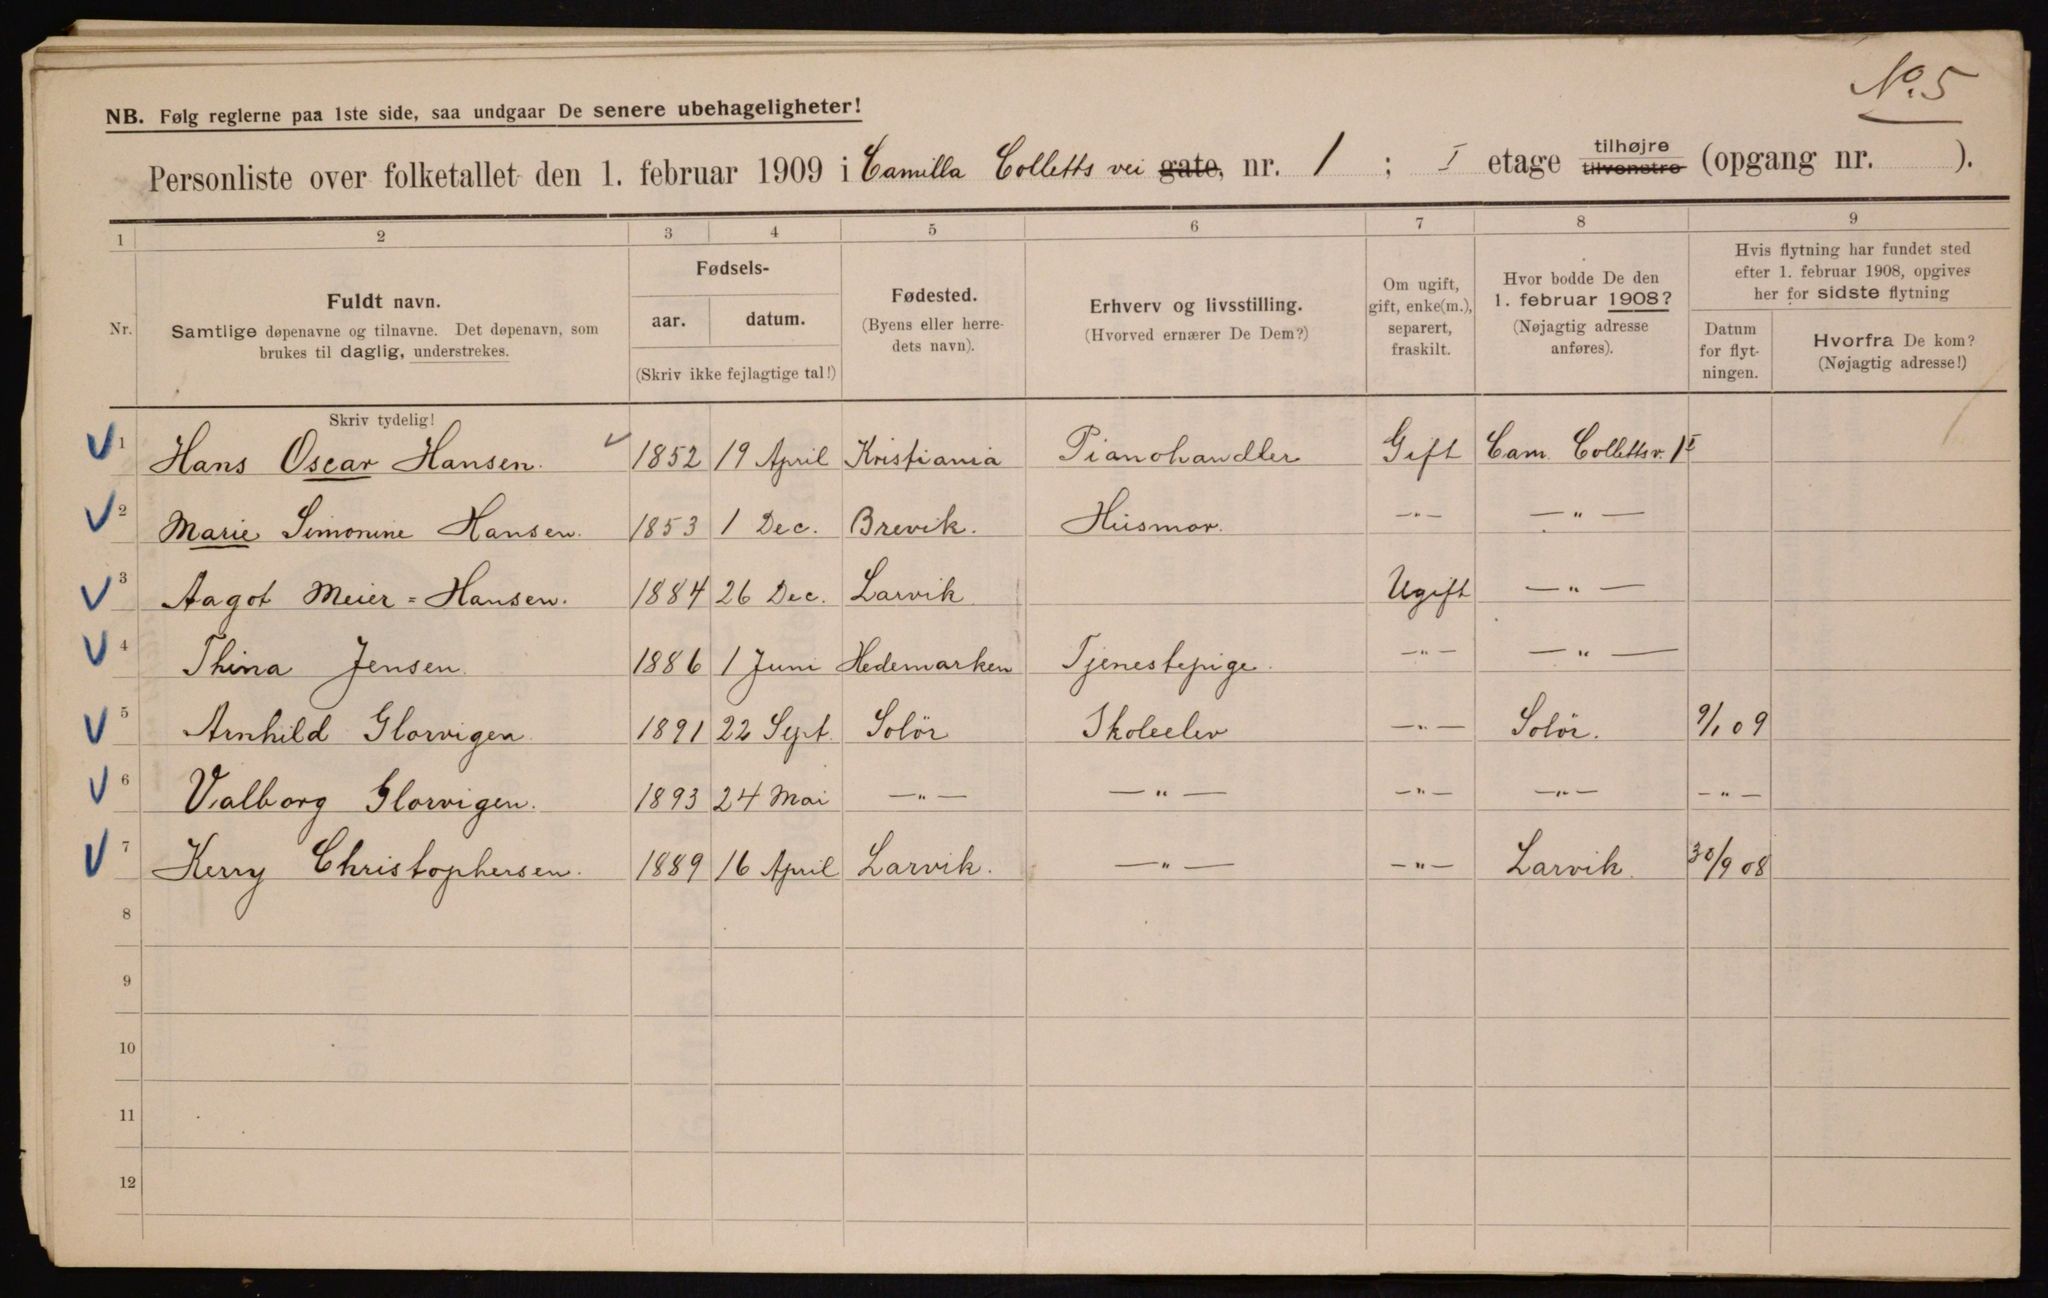 No. 5
NB. Følg reglerne paa 1ste side, saa undgaar De senere ubehageligheter!
Personliste over folketallet den 1. februar 1909 i Camilla Colletts vei gate, nr. 1 ; I etage tilhøjre tilvenstre (opgang nr. ).
1 2 3 4 5 6 7 8 9
Nr.
Fuldt navn.
Samtlige døpenavne og tilnavne. Det døpenavn, som
brukes til daglig, understrekes.
Fødsels-
aar. datum.
(Skriv ikke fejlagtige tal!)
Fødested.
(Byens eller herre-
dets navn).
Erhverv og livsstilling.
(Hvorved ernærer De Dem?)
Om ugift,
gift, enke(m.),
separert,
fraskilt.
Hvor bodde De den
1. februar 1908?
(Nøjagtig adresse
anføres).
Hvis flytning har fundet sted
efter 1. februar 1908, opgives
her for sidste flytning
Datum
for flyt-
ningen.
Hvorfra De kom?
(Nøjagtig adresse!)
Skriv tydelig!
1 Hans Oscar Hansen. 1852 19 April Kristiania Pianohandler Gift Cam. Collettsv. 1 I
2 Marie Simonine Hansen. 1853 1 Dec. Brevik. Husmor. —"— —"—
3 Aagot Meier=Hansen. 1884 26 Dec. Larvik Ugift —"—
4 Thina Jensen. 1886 1 Juni Hedemarken Tjenestepige. —"— —"—
5 Arnhild Glorvigen 1891 22 Sept. Solör Skoleelev —"— Solör. 9/1 09
6 Valborg Glorvigen. 1893 24 Mai —"— —"— —"— —"— —"—
7 Kerry Christophersen. 1889 16 April Larvik. —"— —"— Larvik. 30/9 08
8
9
10
11
12